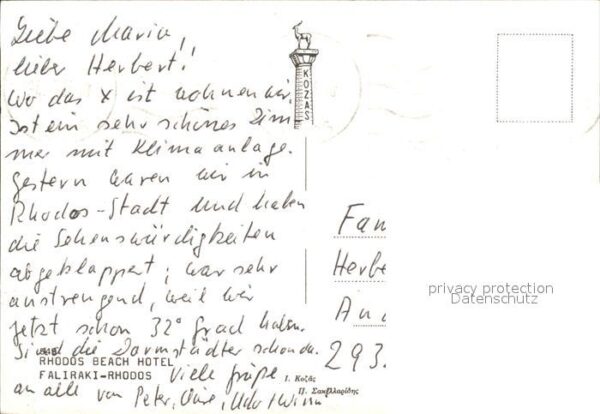 Liebe Maria,
lieber Herbert!
Wo das x ist wohnen wir.
Ist ein sehr schönes Zim
mer mit Klimaanlage.
Gestern waren wir in
Rhodos-Stadt und haben
die Sehenswürdigkeiten
abgeklappert; war sehr
anstrengend, weil wir
jetzt schon 32° Grad haben.
Sind die Darmstädter schon da.
Viele Grüße
an alle von Peter,
RHODOS BEACH HOTEL
FALIRAKI-RHODOS
KOZAS
Fam
Herbe
293.
privacy protection
Datenschutz
Ι. Κοζάς
Π. Σακελλαρίδης